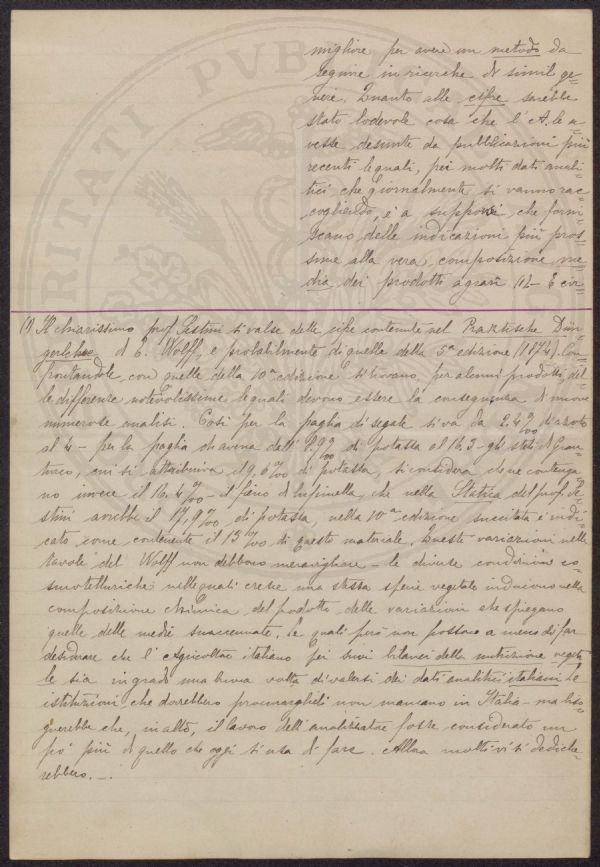 migliore per avere un metodo da
seguire in ricerche di simil ge-
nere. Quanto alle cifre sarebbe
stato lodevole cosa che l'A. le a-
vesse desunte da pubblicazioni più
recenti le quali, pei molti dati anali-
tici che giornalmente si vanno rac-
cogliendo, è a supporsi che forni-
scano delle indicazioni più pros-
sime alla vera composizione me-
dia dei prodotti agrari (1) - E cir-
(1) Il chiarissimo prof. Sestini si valse delle cifre contenute nel Praktische Dün-
gerlehre di E. Wolff, e probabilmente di quelle della 5ª edizione (1874). Con-
frontandole con quelle della 10ª edizione si trovano per alcuni prodotti, del-
le differenze notevolissime le quali devono essere la conseguenza di nuove
numerose analisi. Così per la paglia di segale si va da 2.4‰ di azoto
al 4 - per la paglia di avena dall' 8.9‰ di potassa al 16.3 - gli steli di Gran-
turco, cui si attribuiva il 9,6‰ di potassa si considera che ne contenga
no invece il 16.4‰ - il fieno di Lupinella, che nella Statica del prof. Se-
stini avrebbe il 17,9‰ di potassa, nella 10ª edizione succitata è indi-
cato come contenente il 13‰ di questo materiale. Queste variazioni nelle
tavole del Wolff non debbono meravigliare - le diverse condizioni co-
smotelluriche nelle quali cresce una stessa specie vegetale inducono nella
composizione chimica del prodotto delle variazioni che spiegano
quelle delle medie suaccennate, le quali però non possono a meno di far
desiderare che l'Agricoltore italiano pei suoi bilanci della nutrizione vegeta-
le sia in grado una buona volta di valersi dei dati analitici italiani. Le
istituzioni che dovrebbero procurarglieli non mancano in Italia - ma biso-
gnerebbe che, in alto, il lavoro dell'analizzatore fosse considerato un
po' più di quello che oggi si usa di fare. Allora molti vi si dediche-
rebbero. -
PVBL
RITATI